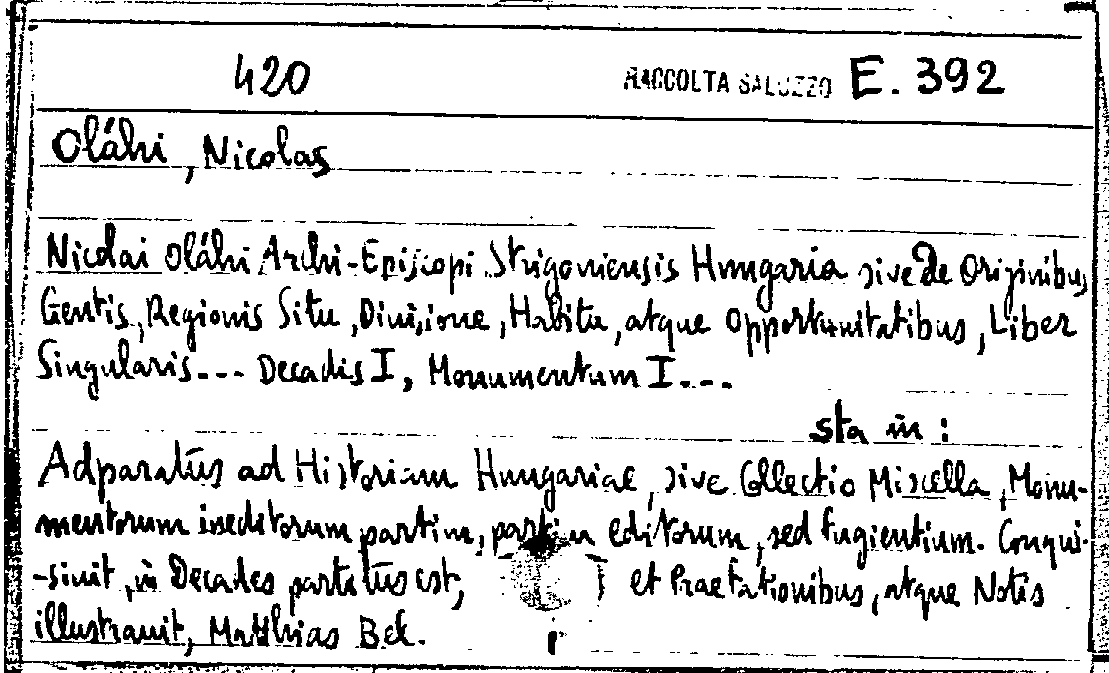 420 RACCOLTA SALUZZO E. 392
Oláhi, Nicolas
Nicolai Oláhi Archi-Episcopi Strigoniensis Hungaria sive De Originibus
Gentis, Regionis Situ, Divisione, Habitu, atque Opportunitatibus, Liber
Singularis--- Decadis I, Monumentum I---
sta in:
Adparatus ad Historiam Hungariae, sive Collectio Miscella, Monu-
mentorum ineditorum partim, partim editorum, sed fugientium. Conqui-
-siuit, in Decades partitus est, et Praefationibus, atque Notis
illustrauit, Matthias Bel.